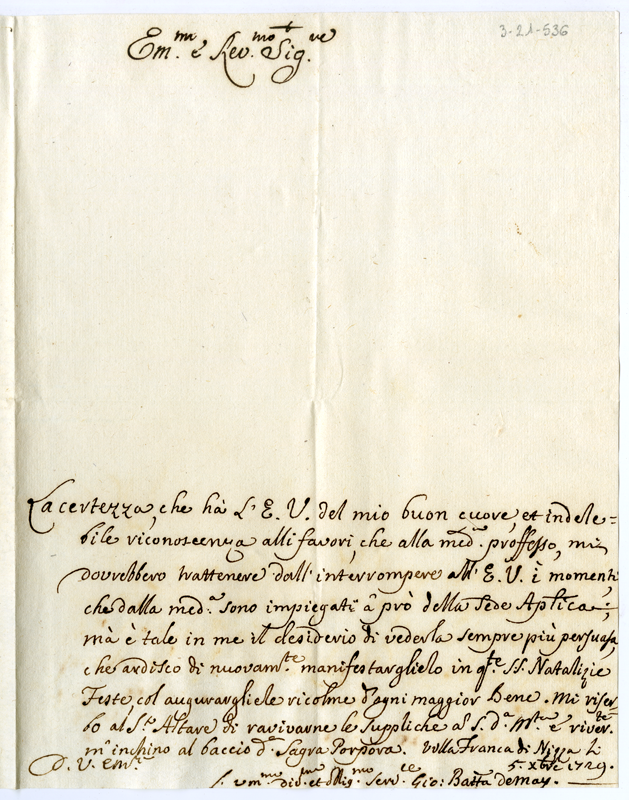 3-21-536
Em.mo e Rev.mo Sig.re
La certezza, che hà L'E. V. del mio buon cuore, et indele=
bile riconoscenza alli favori, che alla med.a proffesso, mi
dovrebbero trattenere dall'interrompere all'E. V. i momenti
che dalla med.a sono impiegati à prò della Sede Aplica;
mà è tale in me il desiderio di vederla sempre più persuasa,
che ardisco di nuovam.te manifestarglielo in q.te SS. Natalizie
Feste, col augurargliele ricolme d'ogni maggior bene. Mi riser-
bo al S.o Altare di ravivarne le suppliche a S. d. M.tà e river.te
m'inchino al baccio d.a Sagra Porpora. Villa Franca di Nizza li
D. V. Em.a 5. xbre 1729.
um.mo div.mo et obblig.mo serv.re Gio: Batta DeMay.